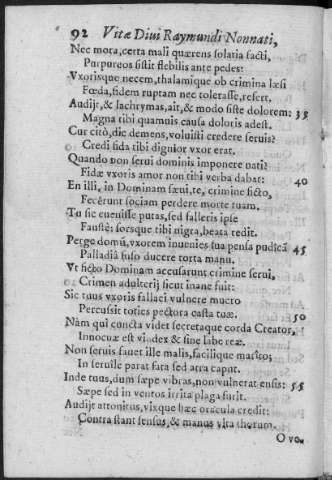 92 Vitæ Diui Raymundi Nonnati,
Nec mora, certa mali quærens solatia facti,
Purpureos sistit flebilis ante pedes:
Vxorisque necem, thalamique ob crimina læsi
Fœda, fidem ruptam nec tolerasse, refert.
Audijt, & lachrymas, ait, & modo siste dolorem: 35
Magna tibi quamuis causa doloris adest.
Cur citò, dic demens, voluisti credere seruis?
Credi fida tibi dignior vxor erat.
Quando non serui dominis imponere nati?
Fidæ vxoris amor non tibi verba dabat: 40
En illi, in Dominam sæui, te, crimine ficto,
Fecêrunt sociam perdere morte tuam.
Tu sic euenisse putas, sed falleris ipse
Faustè: sorsque tibi nigra, beata redit.
Perge domũ, vxorem inuenies sua pensa pudicã 45
Palladiâ fuso ducere torta manu.
Vt ficto Dominam accusarunt crimine serui,
Crimen adulterij sicut inane fuit:
Sic tuus vxoris fallaci vulnere mucro
Percussit toties pectora casta tuæ. 50
Nam qui cuncta videt secretaque corda Creator,
Innocuæ est vindex & sine labe reæ.
Non seruis fauet ille malis, facilique marito;
In seruile parat fata sed atra caput.
Inde tuus, dum sæpe vibras, non vulnerat ensis: 55
Sæpe sed in ventos irrita plaga furit.
Audijt attonitus, vixque hæc oracula credit:
Contra stant sensus, & manus vlta thorum.
O vo-